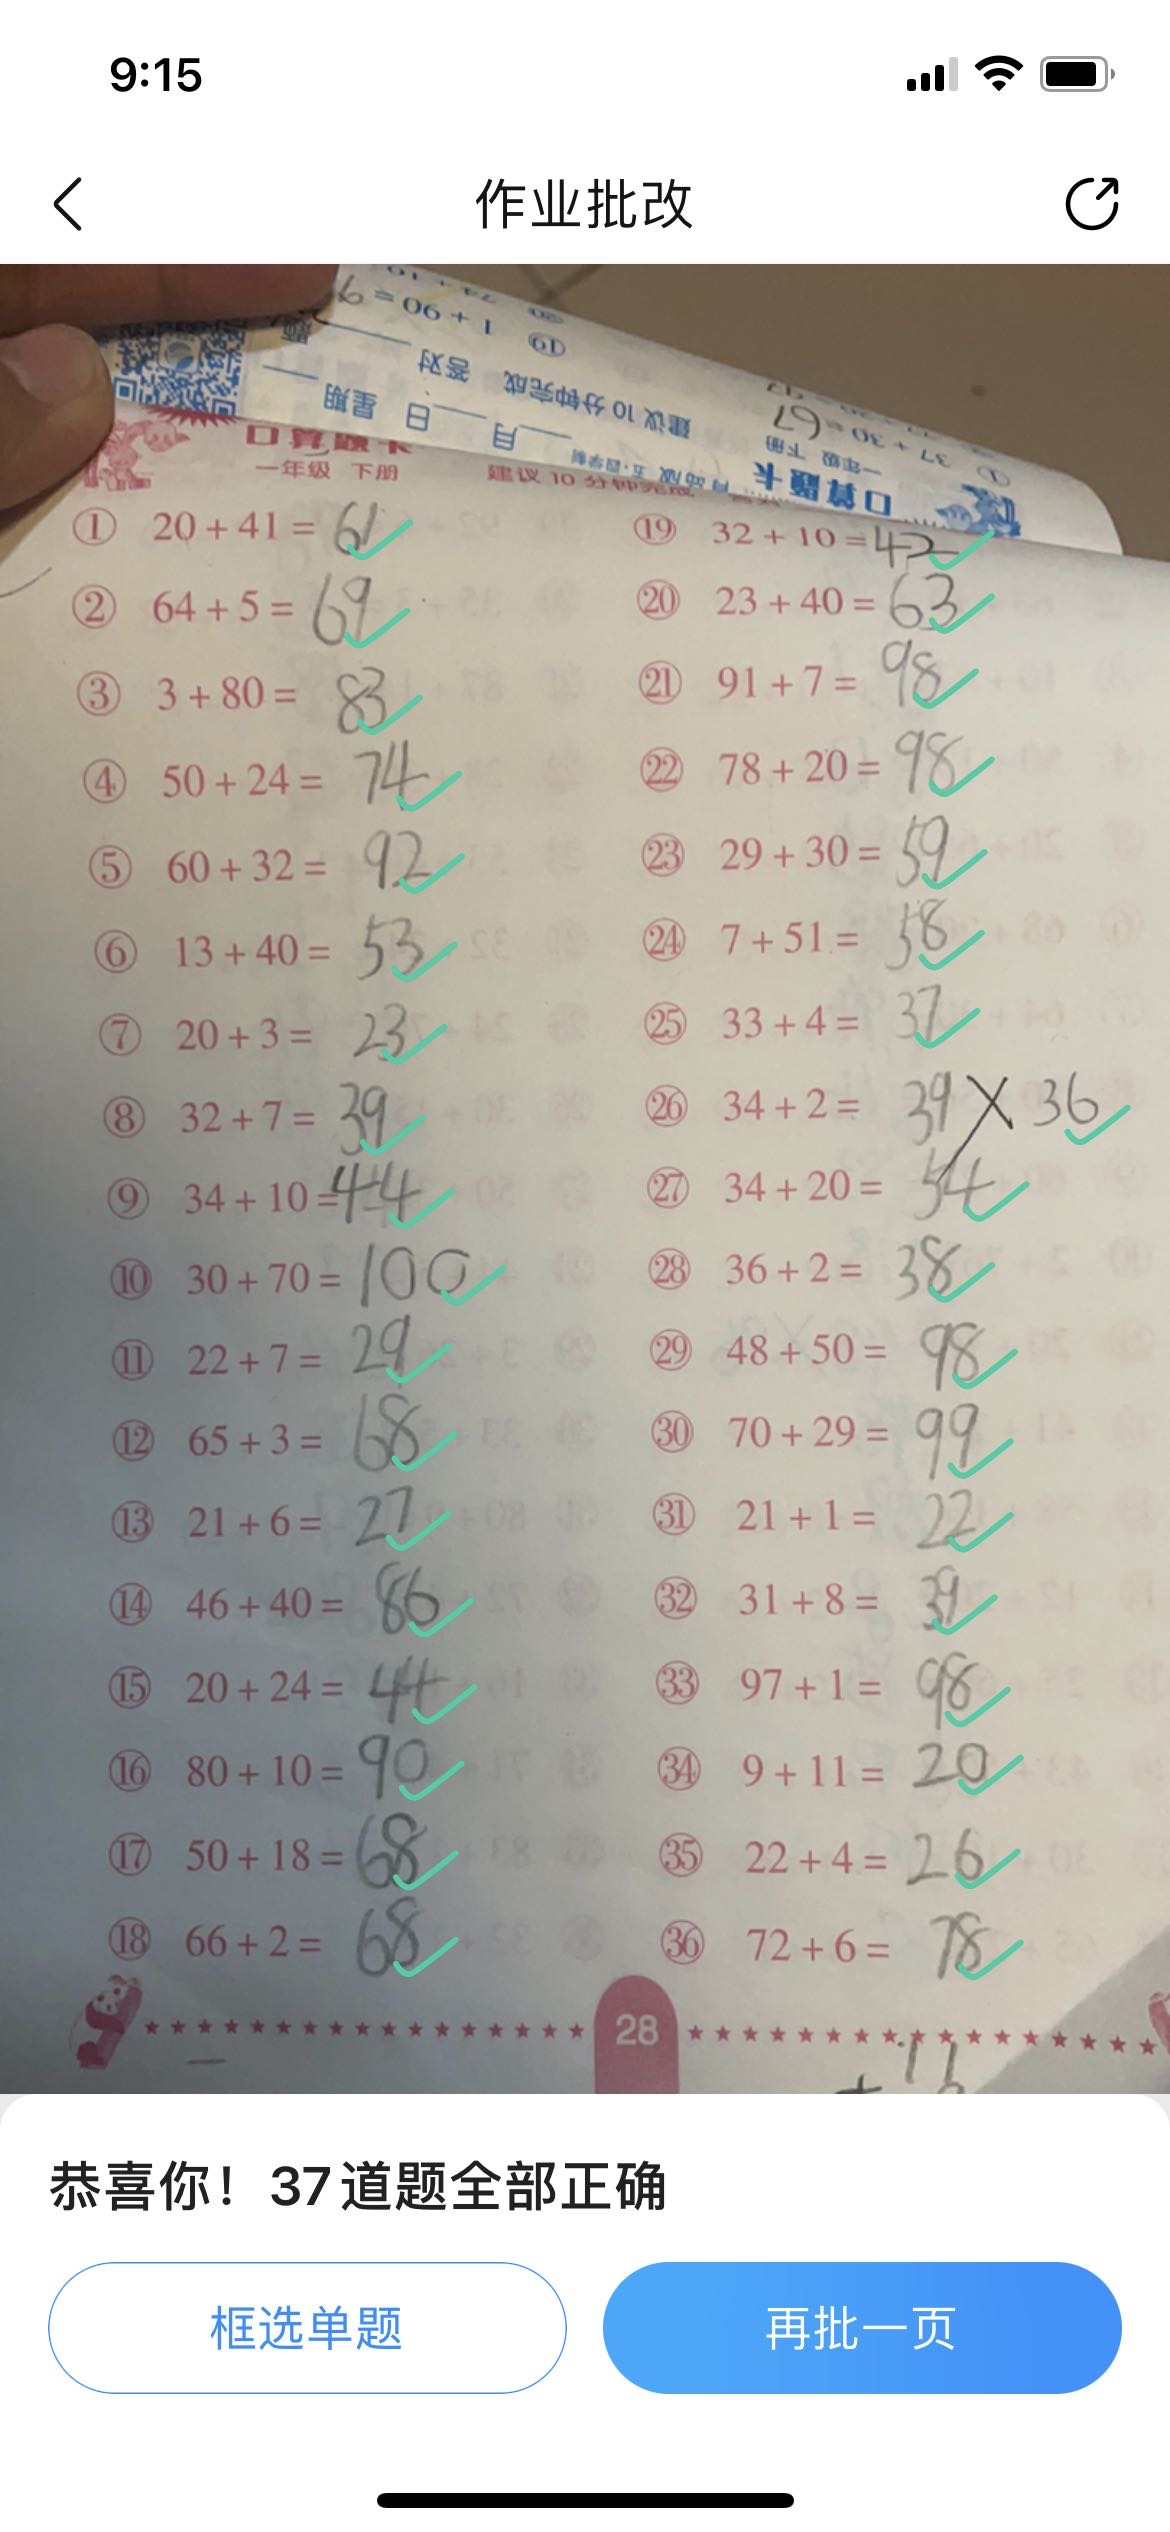 9:15
作业批改
1 + 90 = 9
⑲
建议 10 分钟完成 答对 题
月 日 星期
37 + 30 = 67
①
口算题卡
一年级 下册
口算题卡
一年级 下册 建议 10 分钟完成
① 20 + 41 = 61
② 64 + 5 = 69
③ 3 + 80 = 83
④ 50 + 24 = 74
⑤ 60 + 32 = 92
⑥ 13 + 40 = 53
⑦ 20 + 3 = 23
⑧ 32 + 7 = 39
⑨ 34 + 10 = 44
⑩ 30 + 70 = 100
⑪ 22 + 7 = 29
⑫ 65 + 3 = 68
⑬ 21 + 6 = 27
⑭ 46 + 40 = 86
⑮ 20 + 24 = 44
⑯ 80 + 10 = 90
⑰ 50 + 18 = 68
⑱ 66 + 2 = 68
⑲ 32 + 10 = 42
⑳ 23 + 40 = 63
㉑ 91 + 7 = 98
㉒ 78 + 20 = 98
㉓ 29 + 30 = 59
㉔ 7 + 51 = 58
㉕ 33 + 4 = 37
㉖ 34 + 2 = 39 X 36
㉗ 34 + 20 = 54
㉘ 36 + 2 = 38
㉙ 48 + 50 = 98
㉚ 70 + 29 = 99
㉛ 21 + 1 = 22
㉜ 31 + 8 = 39
㉝ 97 + 1 = 98
㉞ 9 + 11 = 20
㉟ 22 + 4 = 26
㊱ 72 + 6 = 78
28
恭喜你！37道题全部正确
框选单题
再批一页